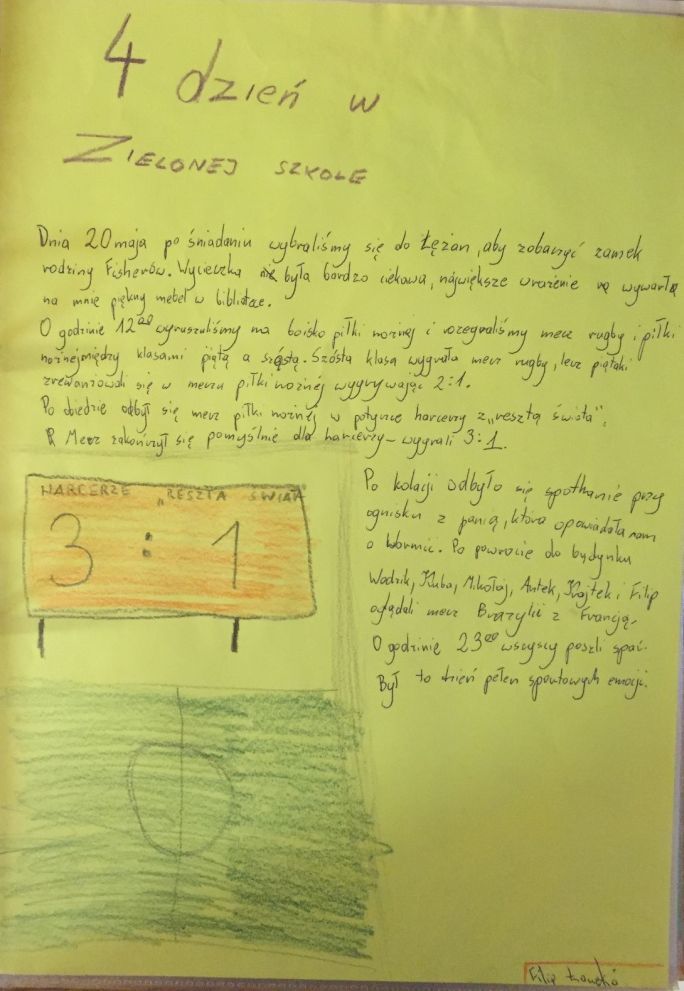 4 dzień w
ZIELONEJ SZKOLE
Dnia 20 maja po śniadaniu wybraliśmy się do Łężan, aby zobaczyć zamek
rodziny Fisherów. Wycieczka była bardzo ciekawa, największe wrażenie wywarł
na mnie piękny mebel w bibliotece.
O godzinie 12⁰⁰ wyruszyliśmy na boisko piłki nożnej i rozegraliśmy mecz rugby i piłki
nożnej między klasami piątą a szóstą. Szósta klasa wygrała mecz rugby, lecz piątaki
zrewanżowali się w meczu piłki nożnej wygrywając 2:1.
Po obiedzie odbył się mecz piłki nożnej w potyczce harcerzy z „resztą świata".
Mecz zakończył się pomyślnie dla harcerzy - wygrali 3:1.
HARCERZE „RESZTA ŚWIATA
3 : 1
Po kolacji odbyło się spotkanie przy
ognisku z panią, która opowiadała nam
o Warmii. Po powrocie do budynku
Wodzik, Kuba, Mikołaj, Antek, Wojtek i Filip
oglądali mecz Brazylii z Francją.
O godzinie 23⁰⁰ wszyscy poszli spać.
Był to dzień pełen sportowych emocji.
Filip